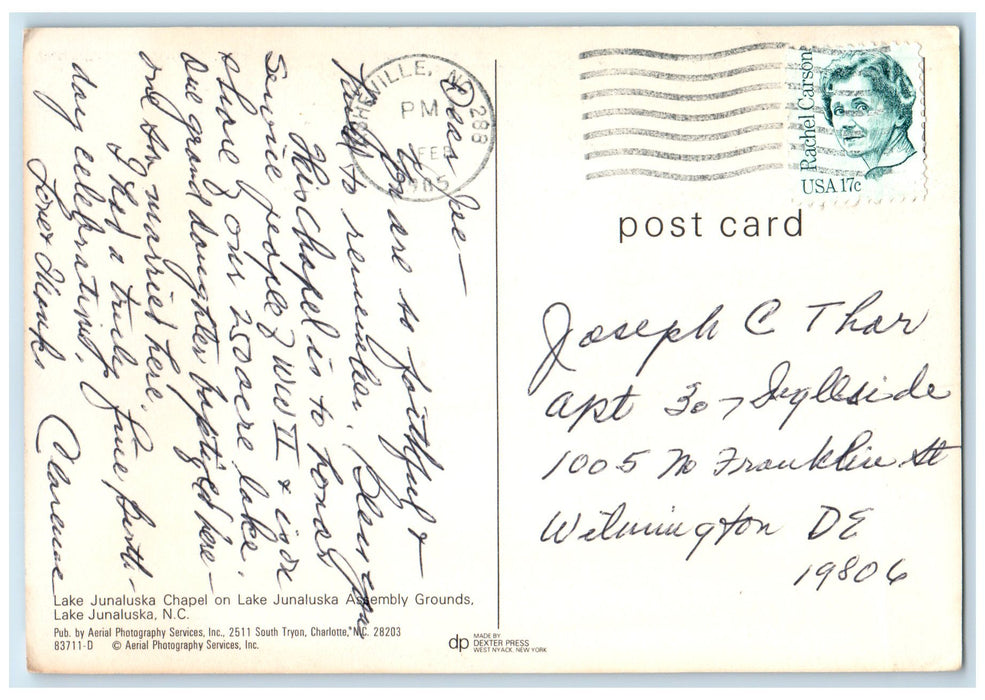 Dear Joe—
You are so faithful &
kind to remember. Bless you
This Chapel is to honor
Service people of WW II & is on
shore of our 250 acre lake.
Our granddaughter baptized here—
one son married here.
I had a truly fine birth-
day celebration.
Love & thanks
Clarence
ASHEVILLE, NC 288
PM
FEB
1985
Rachel Carson
USA 17c
post card
Joseph C Thar
Apt 307 Ingleside
1005 No Franklin St
Wilmington DE
19806
Lake Junaluska Chapel on Lake Junaluska Assembly Grounds,
Lake Junaluska, N.C.
Pub. by Aerial Photography Services, Inc., 2511 South Tryon, Charlotte, N.C. 28203
83711-D © Aerial Photography Services, Inc.
dp MADE BY
DEXTER PRESS
WEST NYACK, NEW YORK